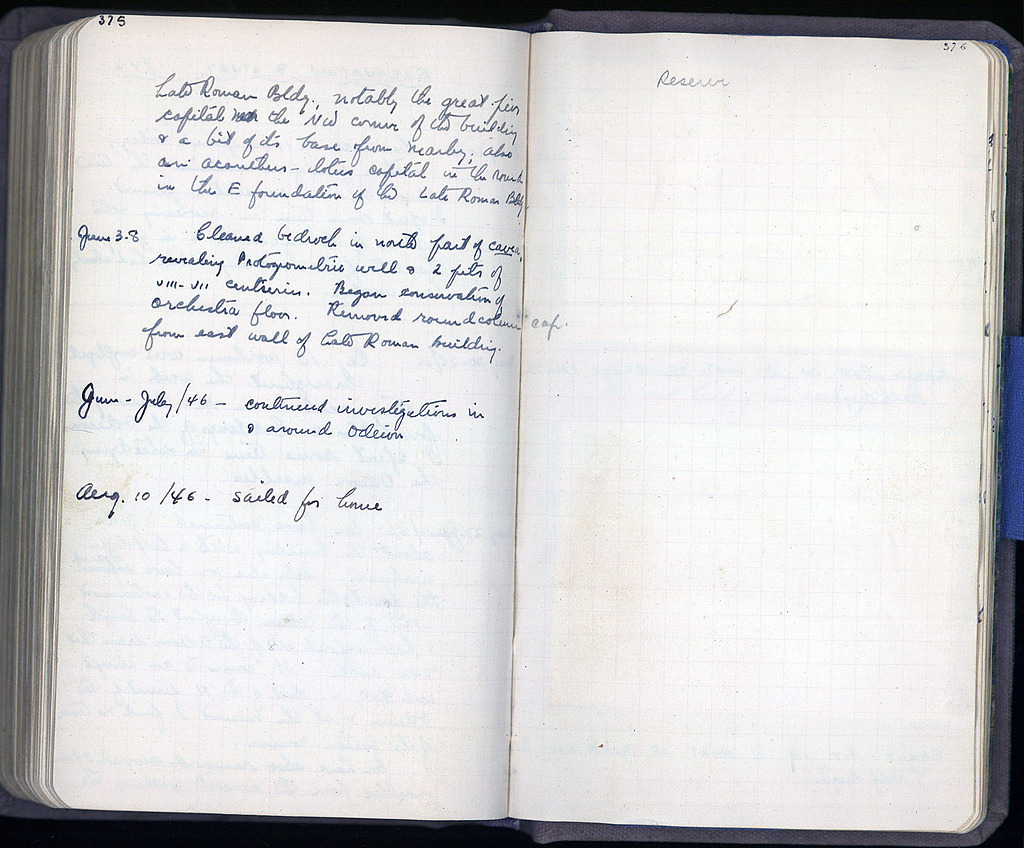 375
Late Roman Bldg., notably the great pier
capital near the NW corner of the building
& a bit of its base from nearby; also
an acanthus-lotus capital in the round
in the E foundation of the Late Roman Bldg.
June 3-8 Cleaned bedrock in north part of cavea,
revealing Protogeometric well & 2 pits of
VIII-VII centuries. Began conservation of
orchestra floor. Removed round column cap.
from east wall of Late Roman Building.
June - July/46 - continued investigations in
& around Odeion
Aug. 10/46 - sailed for home
376
Reserve